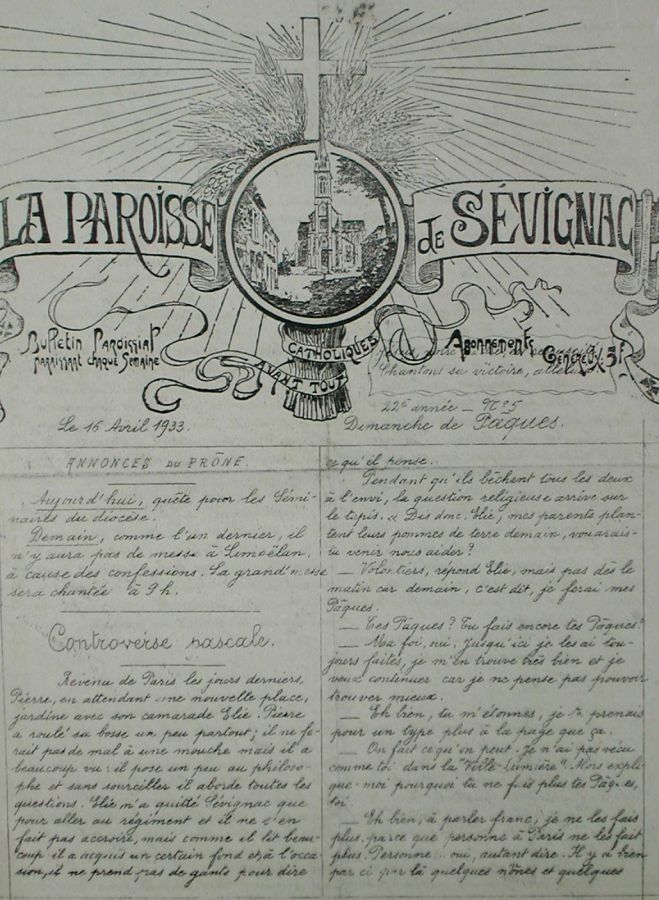 LA PAROISSE
de SÉVIGNAC
Bulletin Paroissial
paraissant chaque Semaine
CATHOLIQUES
AVANT TOUT
Abonnements
Chantons sa victoire,
22e année — No 5
Le 16 Avril 1933.
Dimanche de Pâques.
ANNONCES DU PRÔNE.
Aujourd'hui, quête pour les Sémi-
naires du diocèse.
Demain, comme l'an dernier, il
n'y aura pas de messe à Limoëlan,
à cause des confessions. La grand'messe
sera chantée à 9h.
Controverse pascale.
Revenu de Paris les jours derniers,
Pierre, en attendant une nouvelle place,
jardine avec son camarade Elie. Pierre
a roulé sa bosse un peu partout; il ne fe-
rait pas de mal à une mouche mais il a
beaucoup vu: il pose un peu au philoso-
phe et sans sourciller il aborde toutes les
questions. Elie n'a quitté Sévignac que
pour aller au régiment et il ne s'en
fait pas accroire, mais comme il lit beau-
coup il a acquis un certain fond et à l'occa-
sion, il ne prend pas de gants pour dire
ce qu'il pense.
Pendant qu'ils bêchent tous les deux
à l'envi, la question religieuse arrive sur
le tapis. « Dis donc, Elie, mes parents plan-
tent leurs pommes de terre demain, voudrais-
tu venir nous aider?
— Volontiers, répond Elie, mais pas dès le
matin car demain, c'est dit, je ferai mes
Pâques.
— Tes Pâques? Tu fais encore tes Pâques?
— Ma foi, oui. Jusqu'ici je les ai tou-
jours faites, je m'en trouve très bien et je
veux continuer car je ne pense pas pouvoir
trouver mieux.
— Eh bien, tu m'étonnes, je te prenais
pour un type plus à la page que ça.
— On fait ce qu'on peut. Je n'ai pas vécu
comme toi dans la Ville-Lumière! Alors expli-
que-moi pourquoi tu ne fais plus tes Pâques,
toi.
— Eh bien, à parler franc, je ne les fais
plus, parce que personne à Paris ne les fait
plus. Personne.. oui, autant dire. Il y a bien
par ci par là quelques nônes et quelques